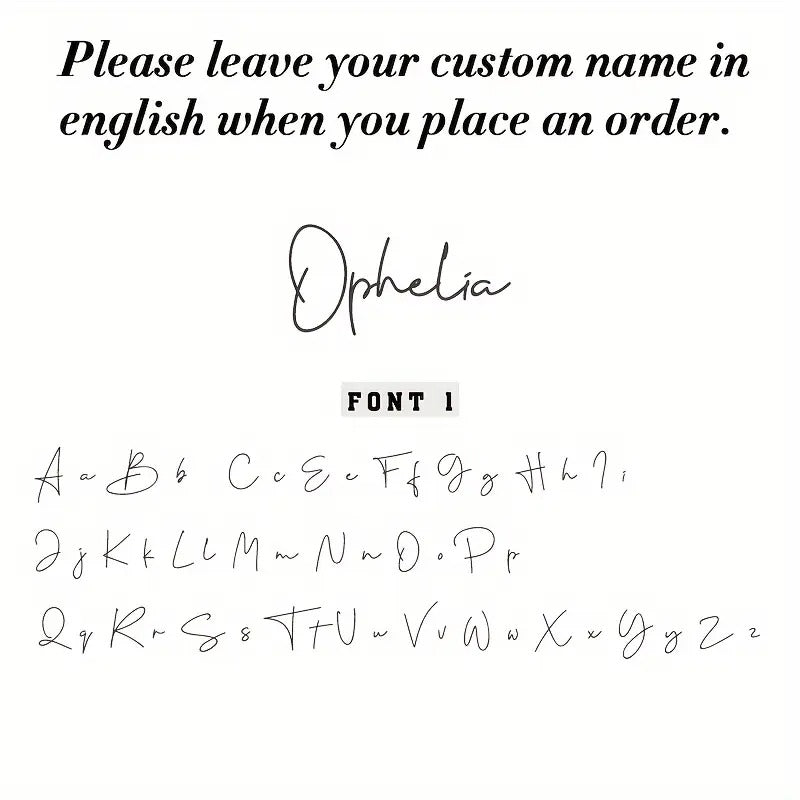 Please leave your custom name in
english when you place an order.
Ophelia
FONT 1
A a B b C c E e F f G g H h I i
J j K k L l M m N n O o P p
Q q R r S s T t U u V v W w X x Y y Z z